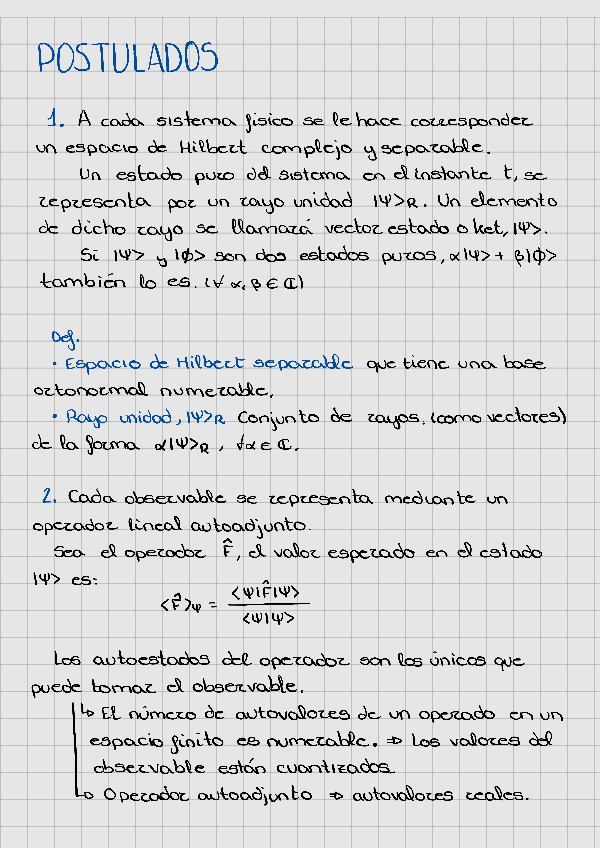 POSTULADOS
1. A cada sistema físico se le hace corresponder
un espacio de Hilbert complejo y separable.
Un estado puro del sistema en el instante t, se
representa por un rayo unidad |Ψ>R. Un elemento
de dicho rayo se llamará vector estado o ket, |Ψ>.
Si |Ψ> y |ϕ> son dos estados puros, α|Ψ> + β|ϕ>
también lo es. (∀ α, β ∈ ℂ)
Def.
· Espacio de Hilbert separable que tiene una base
ortonormal numerable.
· Rayo unidad, |Ψ>R Conjunto de rayos. (como vectores)
de la forma α|Ψ>R , ∀α ∈ ℂ.
2. Cada observable se representa mediante un
operador lineal autoadjunto.
Sea el operador F̂, el valor esperado en el estado
|Ψ> es:
<F̂>Ψ = <Ψ|F̂|Ψ> / <Ψ|Ψ>
Los autoestados del operador son los únicos que
puede tomar el observable.
↳ El número de autovalores de un operado en un
espacio finito es numerable. ⇒ Los valores del
observable están cuantizados
↳ Operador autoadjunto ⇒ autovalores reales.